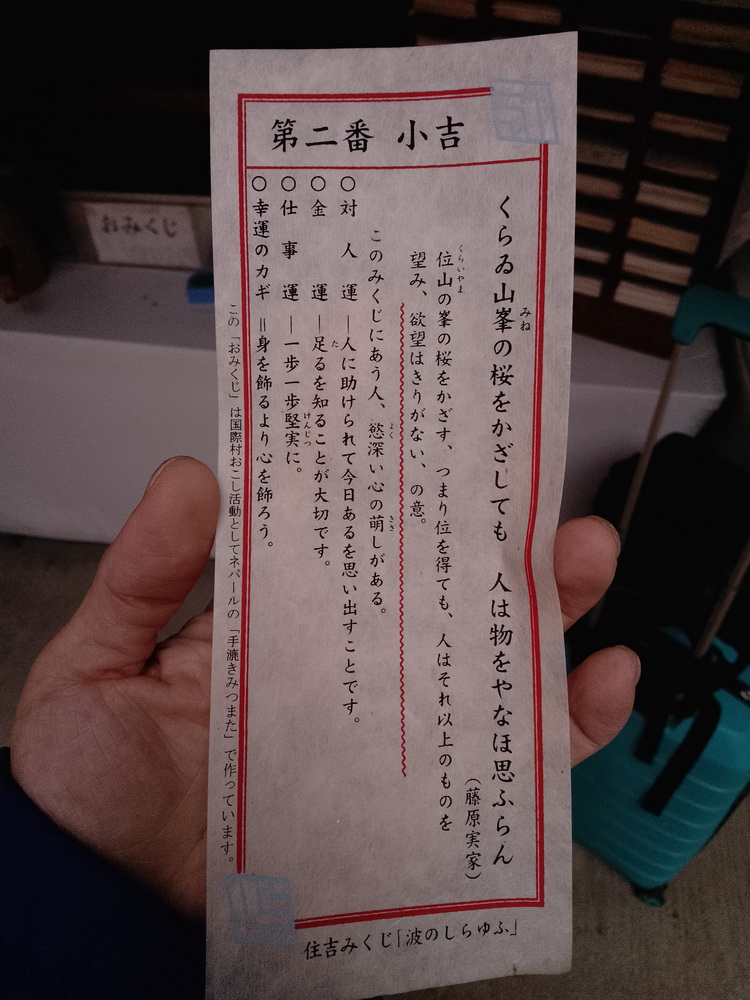 第二番 小吉
くらゐ山峯の桜をかざしても 人は物をやなほ思ふらん
みね
(藤原実家)
位山の峯の桜をかざす、つまり位を得ても、人はそれ以上のものを
くらいやま
望み、欲望はきりがない、の意。
このみくじにあう人、慾深い心の萌しがある。
よく
きざ
○対人運―人に助けられて今日あるを思い出すことです。
○金運―足るを知ることが大切です。
た
○仕事運―一歩一歩堅実に。
けんじつ
○幸運のカギ=身を飾るより心を飾ろう。
この「おみくじ」は国際村おこし活動としてネパールの「手漉きみつまた」で作っています。
住吉みくじ「波のしらゆふ」
おみくじ